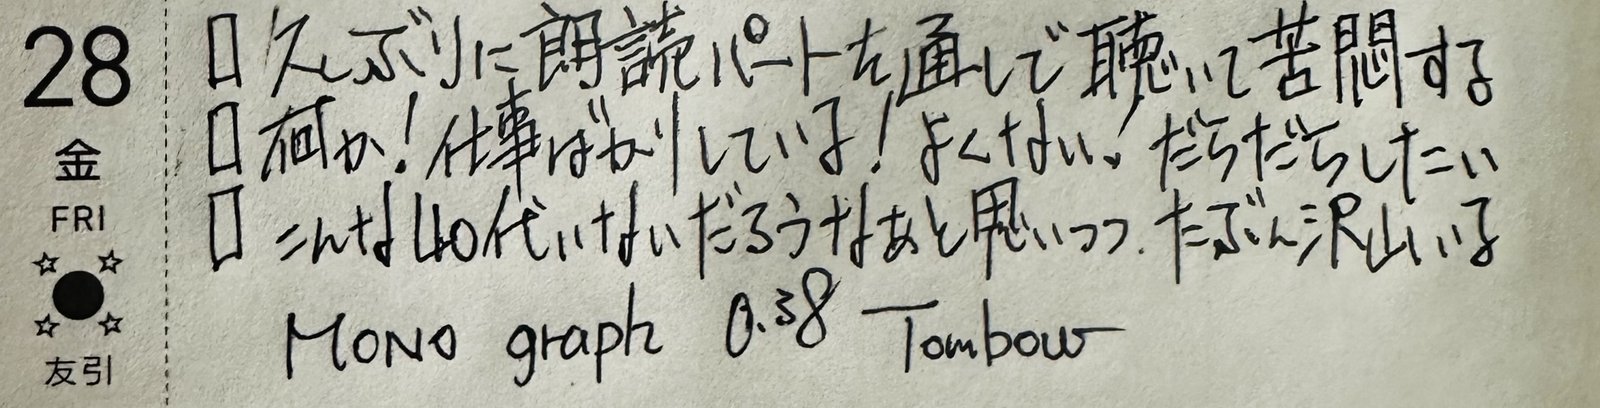 28
金
FRI
友引
久しぶりに朗読パートを通しで聴いて苦悶する
何か!仕事ばかりしている!よくない!だらだらしたい
こんな40代いないだろうなぁと思いつつ、たぶん沢山いる
MONO graph 0.38 Tombow